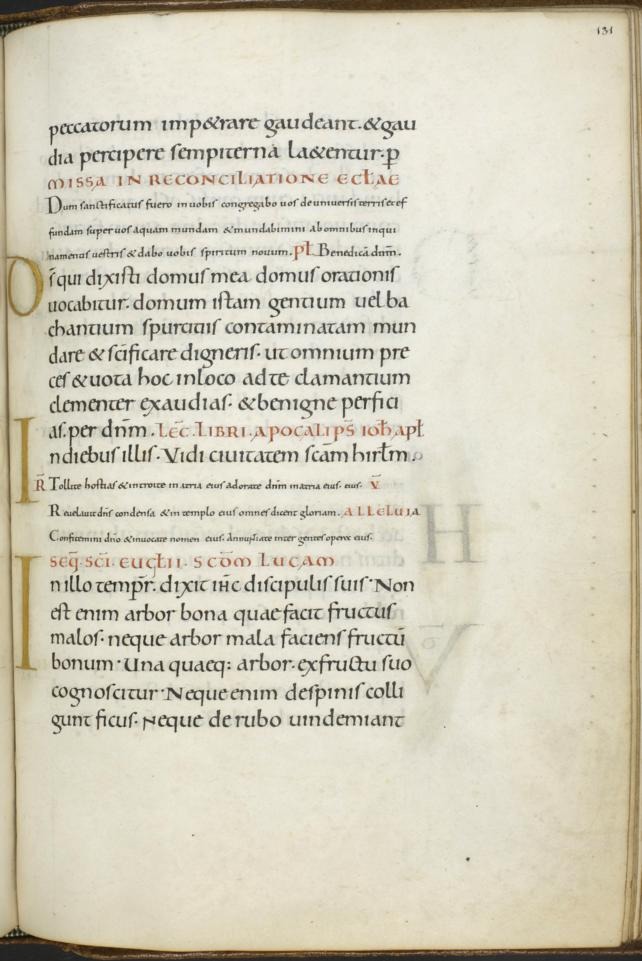 131
peccatorum imp&rare gaudeant. &gau
dia percipere sempiterna la&entur. p̱
MISSA IN RECONCILIATIONE ECŁAE
Dum sanctificatus fuero in uobis congregabo uos de uniuersis terris et ef
fundam super uos aquam mundam & mundabimini ab omnibus inqui
namentis uestris & dabo uobis spiritum nouum. pł. Benedicā dnm̄.
Ds̄ qui dixisti domus mea domus orationis
uocabitur. domum istam gentium uel ba
chantium spurcitiis contaminatam mun
dare & scīficare digneris. ut omnium pre
ces & uota hoc in loco ad te clamantium
clementer exaudias. & benigne perfici
as. per dnm̄. LEC̄. LIBRI. APOCALIPS̄ IOħ APŁ
In diebus illis. Vidi ciuitatem scam̄ hirłm.
R̄ Tollite hostias & introite in atria eius adorate dnm̄ in atria eius. eius. V̄
Reuelauit dn̄s condensa & in templo eius omnes dicent gloriam. ALLELUIA
Confitemini dno̅ & inuocate nomen eius. Annuntiate inter gentes opera eius.
SEQ̄. SCĪ. EUGŁII. SCD̄M LUCAM
In illo tempr̄. dixit ihc̄ discipulis suis. Non
est enim arbor bona quae facit fructus
malos. neque arbor mala faciens fructū
bonum. Una quaeq: arbor. ex fructu suo
cognoscitur. Neque enim de spinis colli
gunt ficus. Neque de rubo uindemiant